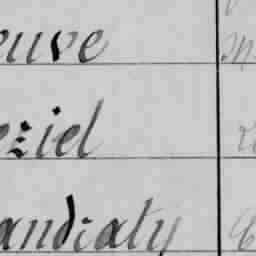 euve
eziel
andialy